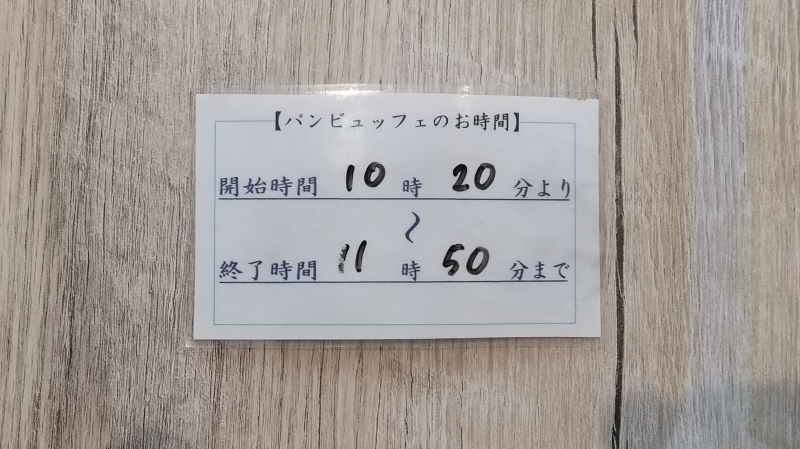 【パンビュッフェのお時間】
開始時間 10 時 20 分より
〜
終了時間 11 時 50 分まで